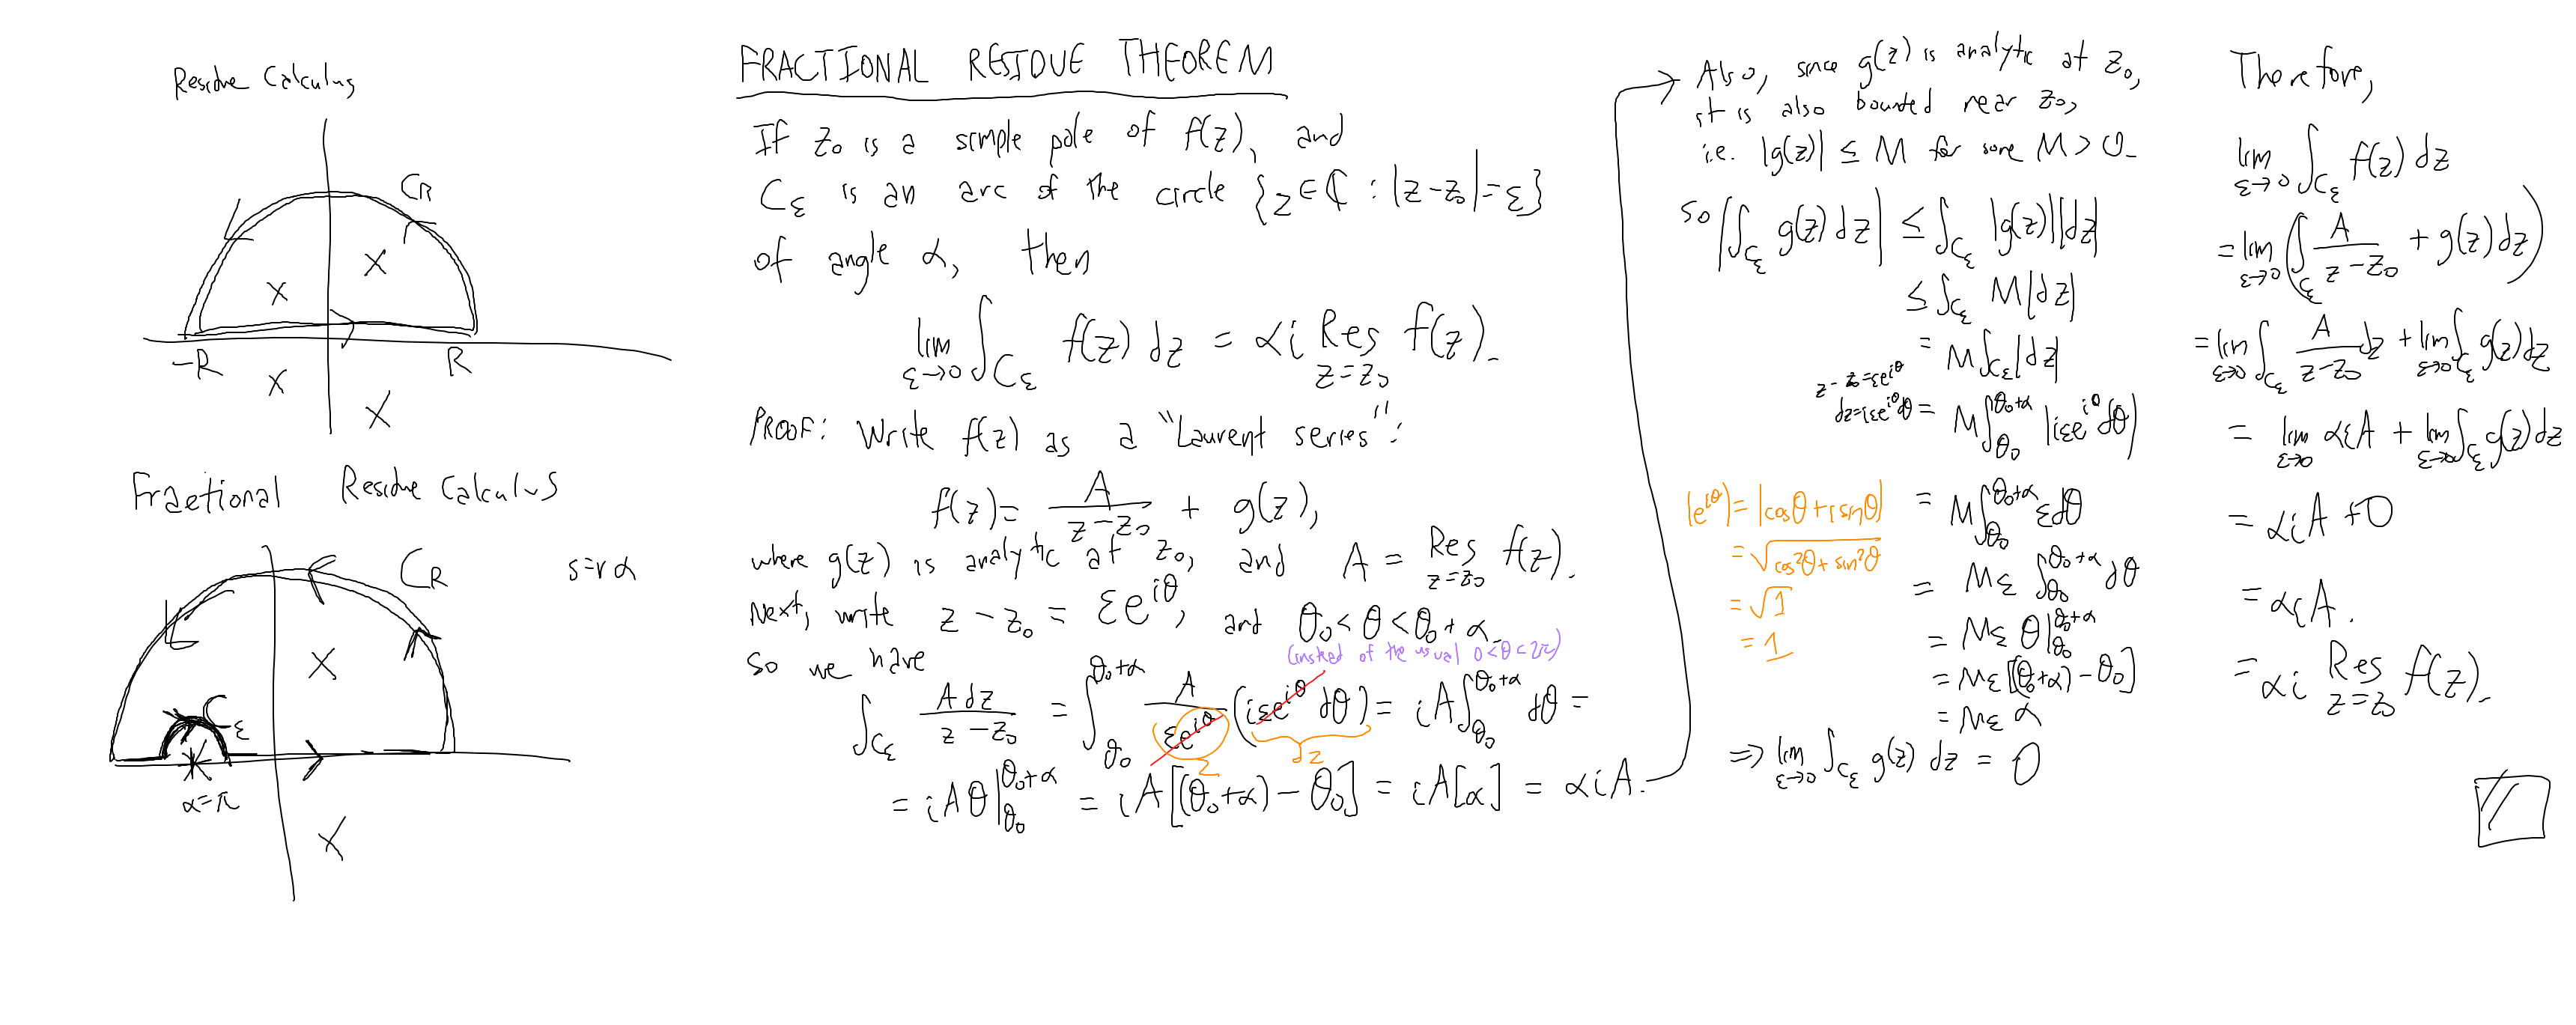 Residue Calculus
C_R
X
X
-R
R
X
X
Fractional Residue Calculus
C_R
s=rα
X
C_ε
X
α=π
X
FRACTIONAL RESIDUE THEOREM
If z₀ is a simple pole of f(z), and
C_ε is an arc of the circle {z∈ℂ : |z-z₀|=ε}
of angle α, then
lim_{ε→0} ∫_{C_ε} f(z) dz = αi Res_{z=z₀} f(z).
PROOF: Write f(z) as a "Laurent series":
f(z) = A/(z-z₀) + g(z),
where g(z) is analytic at z₀, and A = Res_{z=z₀} f(z).
Next, write z-z₀ = εe^{iθ}, and θ₀<θ<θ₀+α.
(instead of the usual 0<θ<2π)
So we have
∫_{C_ε} A dz/(z-z₀) = ∫_{θ₀}^{θ₀+α} A/(εe^{iθ}) (iεe^{iθ} dθ) = iA∫_{θ₀}^{θ₀+α} dθ =
z
dz
= iAθ|_{θ₀}^{θ₀+α} = iA[(θ₀+α)-θ₀] = iA[α] = αiA.
Also, since g(z) is analytic at z₀,
it is also bounded near z₀,
i.e. |g(z)| ≤ M for some M>0.
so |∫_{C_ε} g(z) dz| ≤ ∫_{C_ε} |g(z)||dz|
≤ ∫_{C_ε} M|dz|
= M∫_{C_ε}|dz|
z-z₀=εe^{iθ}
dz=iεe^{iθ}dθ = M∫_{θ₀}^{θ₀+α} |iεe^{iθ}dθ|
= M∫_{θ₀}^{θ₀+α} εdθ
= Mε ∫_{θ₀}^{θ₀+α} dθ
= Mε θ|_{θ₀}^{θ₀+α}
= Mε[(θ₀+α)-θ₀]
= Mε α
|e^{iθ}| = |cosθ+isinθ|
= √(cos²θ+sin²θ)
= √1
= 1
⇒ lim_{ε→0} ∫_{C_ε} g(z) dz = 0
Therefore,
lim_{ε→0} ∫_{C_ε} f(z) dz
= lim_{ε→0} (∫_{C_ε} A/(z-z₀) + g(z) dz)
= lim_{ε→0} ∫_{C_ε} A/(z-z₀) dz + lim_{ε→0} ∫_{C_ε} g(z) dz
= lim_{ε→0} αiA + lim_{ε→0} ∫_{C_ε} g(z) dz
= αiA + 0
= αiA.
= αi Res_{z=z₀} f(z).